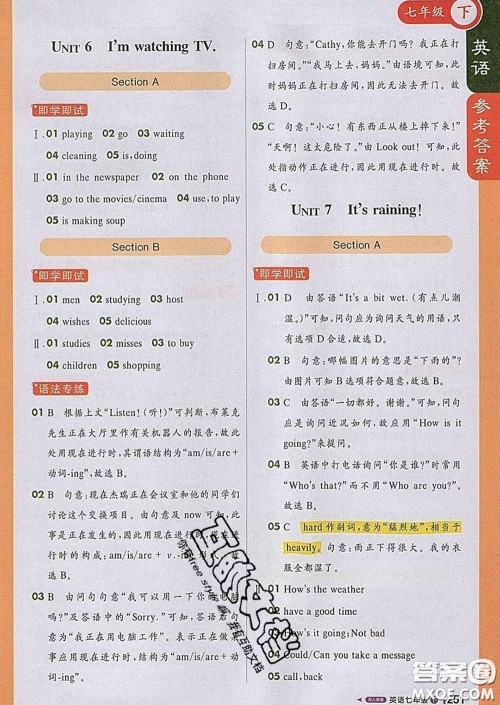 七年级 下
英语
参考答案
UNIT 6 I'm watching TV.
Section A
即学即试
Ⅰ. 01 playing 02 go 03 waiting
04 cleaning 05 is, doing
Ⅱ. 01 in the newspaper 02 on the phone
03 go to the movies/cinema 04 use, to play
05 is making soup
Section B
即学即试
Ⅰ. 01 men 02 studying 03 host
04 wishes 05 delicious
Ⅱ. 01 studies 02 misses 03 to buy
04 children 05 shopping
语法专练
01 B 根据上文“Listen!(听!)”可判断,布莱克
先生正在大厅里作有关机器人的报告,故此
处用现在进行时,其谓语结构为“am/is/are+
动词-ing”,故选 B。
02 B 句意:现在杰瑞正在会议室和他的同学们
讨论这个交换项目。由句意及 now 可知,此
事是正在发生的,因此用现在进行时。现在进
行时的结构为“am/is/are + v.-ing”。
故选 B。
03 B 由问句句意“我可以用一下你的电脑
吗?”及答语中的“Sorry.”可知,答语后句
意为“我正在用电脑工作”。表示正在做某
事应用现在进行时,结构为“am/is/are+
动词-ing”,故选 B。
04 D 句意:“Cathy,你能去开门吗?我正在打
扫房间。”“我马上去,妈妈。”由语境可知,此
时我正在打扫房间,因此无法去开门。故
选 D。
05 C 句意:“小心!有东西正从楼上掉下来!”
“天啊!这太危险了。”由 Look out! 可知,此
处指动作正在进行,因此用现在进行时。故
选 C。
UNIT 7 It's raining!
Section A
即学即试
Ⅰ. 01 D 由答语“It's a bit wet.(有点儿潮
湿。)”可知,问句应为询问天气的用语,只
有选项 D 适合,故选 D。
02 B 句意:哪幅图片的意思是“下雨的”?
由题意可知 B 选项符合题意。故选 B。
03 C 由答语“一切都好。谢谢。”可知,问句
应是询问近况如何,故应用“How is it
going?”来提问。故选 C。
04 B 英语中打电话询问“你是谁?”时常用
“Who's that?”而不用“Who are you?”。故
选 B。
05 C hard 作副词,意为“猛烈地”,相当于
heavily。句意:雨正下得很大。我的衣
服全都湿了。
Ⅱ. 01 How's the weather
02 have a good time
03 How's it going; Not bad
04 Could/Can you take a message
05 call him back
英语七年级
251